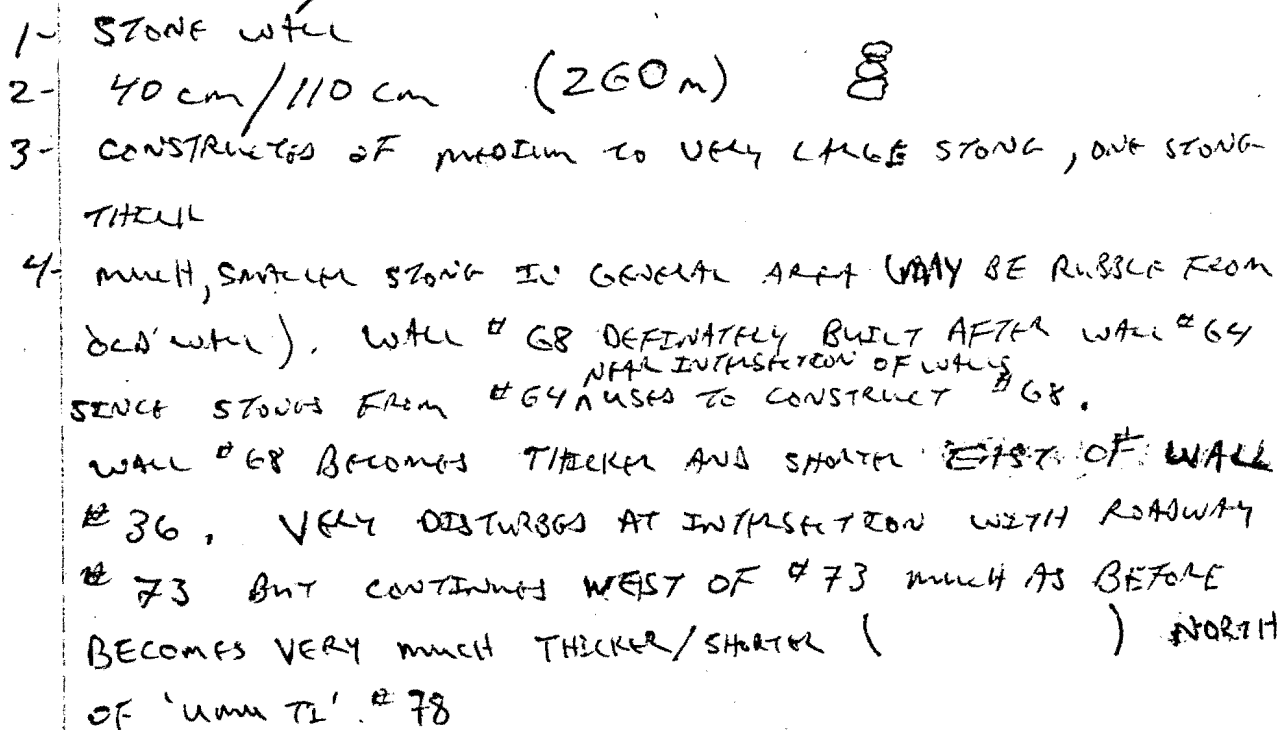 1- STONE WALL
2- 40 cm/110 cm (260m)
3- CONSTRUCTED OF MEDIUM TO VERY LARGE STONE, ONE STONE
THICK
4- MUCH, SMALLER STONE IN GENERAL AREA (MAY BE RUBBLE FROM
OLD WALL). WALL #68 DEFINATELY BUILT AFTER WALL #64
NEAR INTERSECTION OF WALLS
SINCE STONES FROM #64 ^ USED TO CONSTRUCT #68.
WALL #68 BECOMES THICKER AND SHORTER EAST OF WALL
#36. VERY DISTURBED AT INTERSECTION WITH ROADWAY
#73 BUT CONTINUES WEST OF #73 MUCH AS BEFORE
BECOMES VERY MUCH THICKER/SHORTER ( ) NORTH
OF 'UMU TI' #78